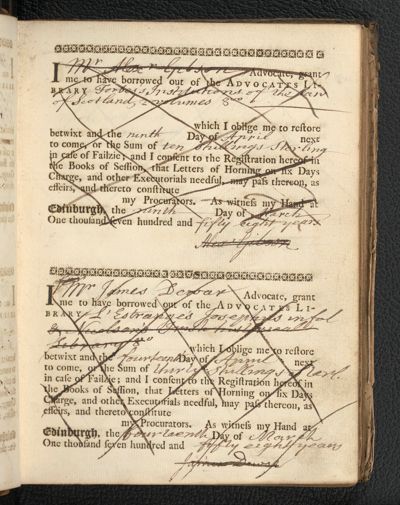 I Mr Alexr Gibson Advocate, grant
me to have borrowed out of the ADVOCATES LI-
BRARY Forbes's Institutions of the Law
of Scotland, 2 volumes 8vo
which I oblige me to reſtore
betwixt and the ninth Day of April next
to come, or the Sum of ten Shillings Sterling
in caſe of Failzie; and I conſent to the Regiſtration hereof in
the Books of Seſſion, that Letters of Horning on ſix Days
Charge, and other Executorials needful, may paſs thereon, as
effeirs, and thereto conſtitute
my Procurators. As witneſs my Hand at
Edinburgh, the ninth Day of March
One thouſand ſeven hundred and fifty eight years
Alexr Gibson
I Mr James Dewar Advocate, grant
me to have borrowed out of the ADVOCATES LI-
BRARY L'Estrange's Josephus in fol
Library
which I oblige me to reſtore
betwixt and the fourteenth Day of next
to come, or the Sum of thirty Shillings Sterl
in caſe of Failzie; and I conſent to the Regiſtration hereof in
the Books of Seſſion, that Letters of Horning on ſix Days
Charge, and other Executorials needful, may paſs thereon, as
effeirs, and thereto conſtitute
my Procurators. As witneſs my Hand at
Edinburgh, the fourteenth Day of March
One thouſand ſeven hundred and fifty eight years
James Dewar